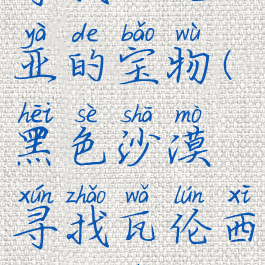 yà de bǎo wù
亚的宝物(
hēi sè shā mò
黑色沙漠
xún zhǎo wǎ lún xī
寻找瓦伦西